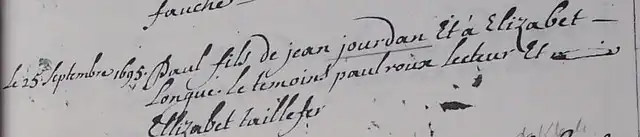 fauche
le 25. Septembre 1695. Paul fils de jean jourdan Et à Elizabet
Longue. le temoins paul roux lecteur Et
Ellizabet taillefer